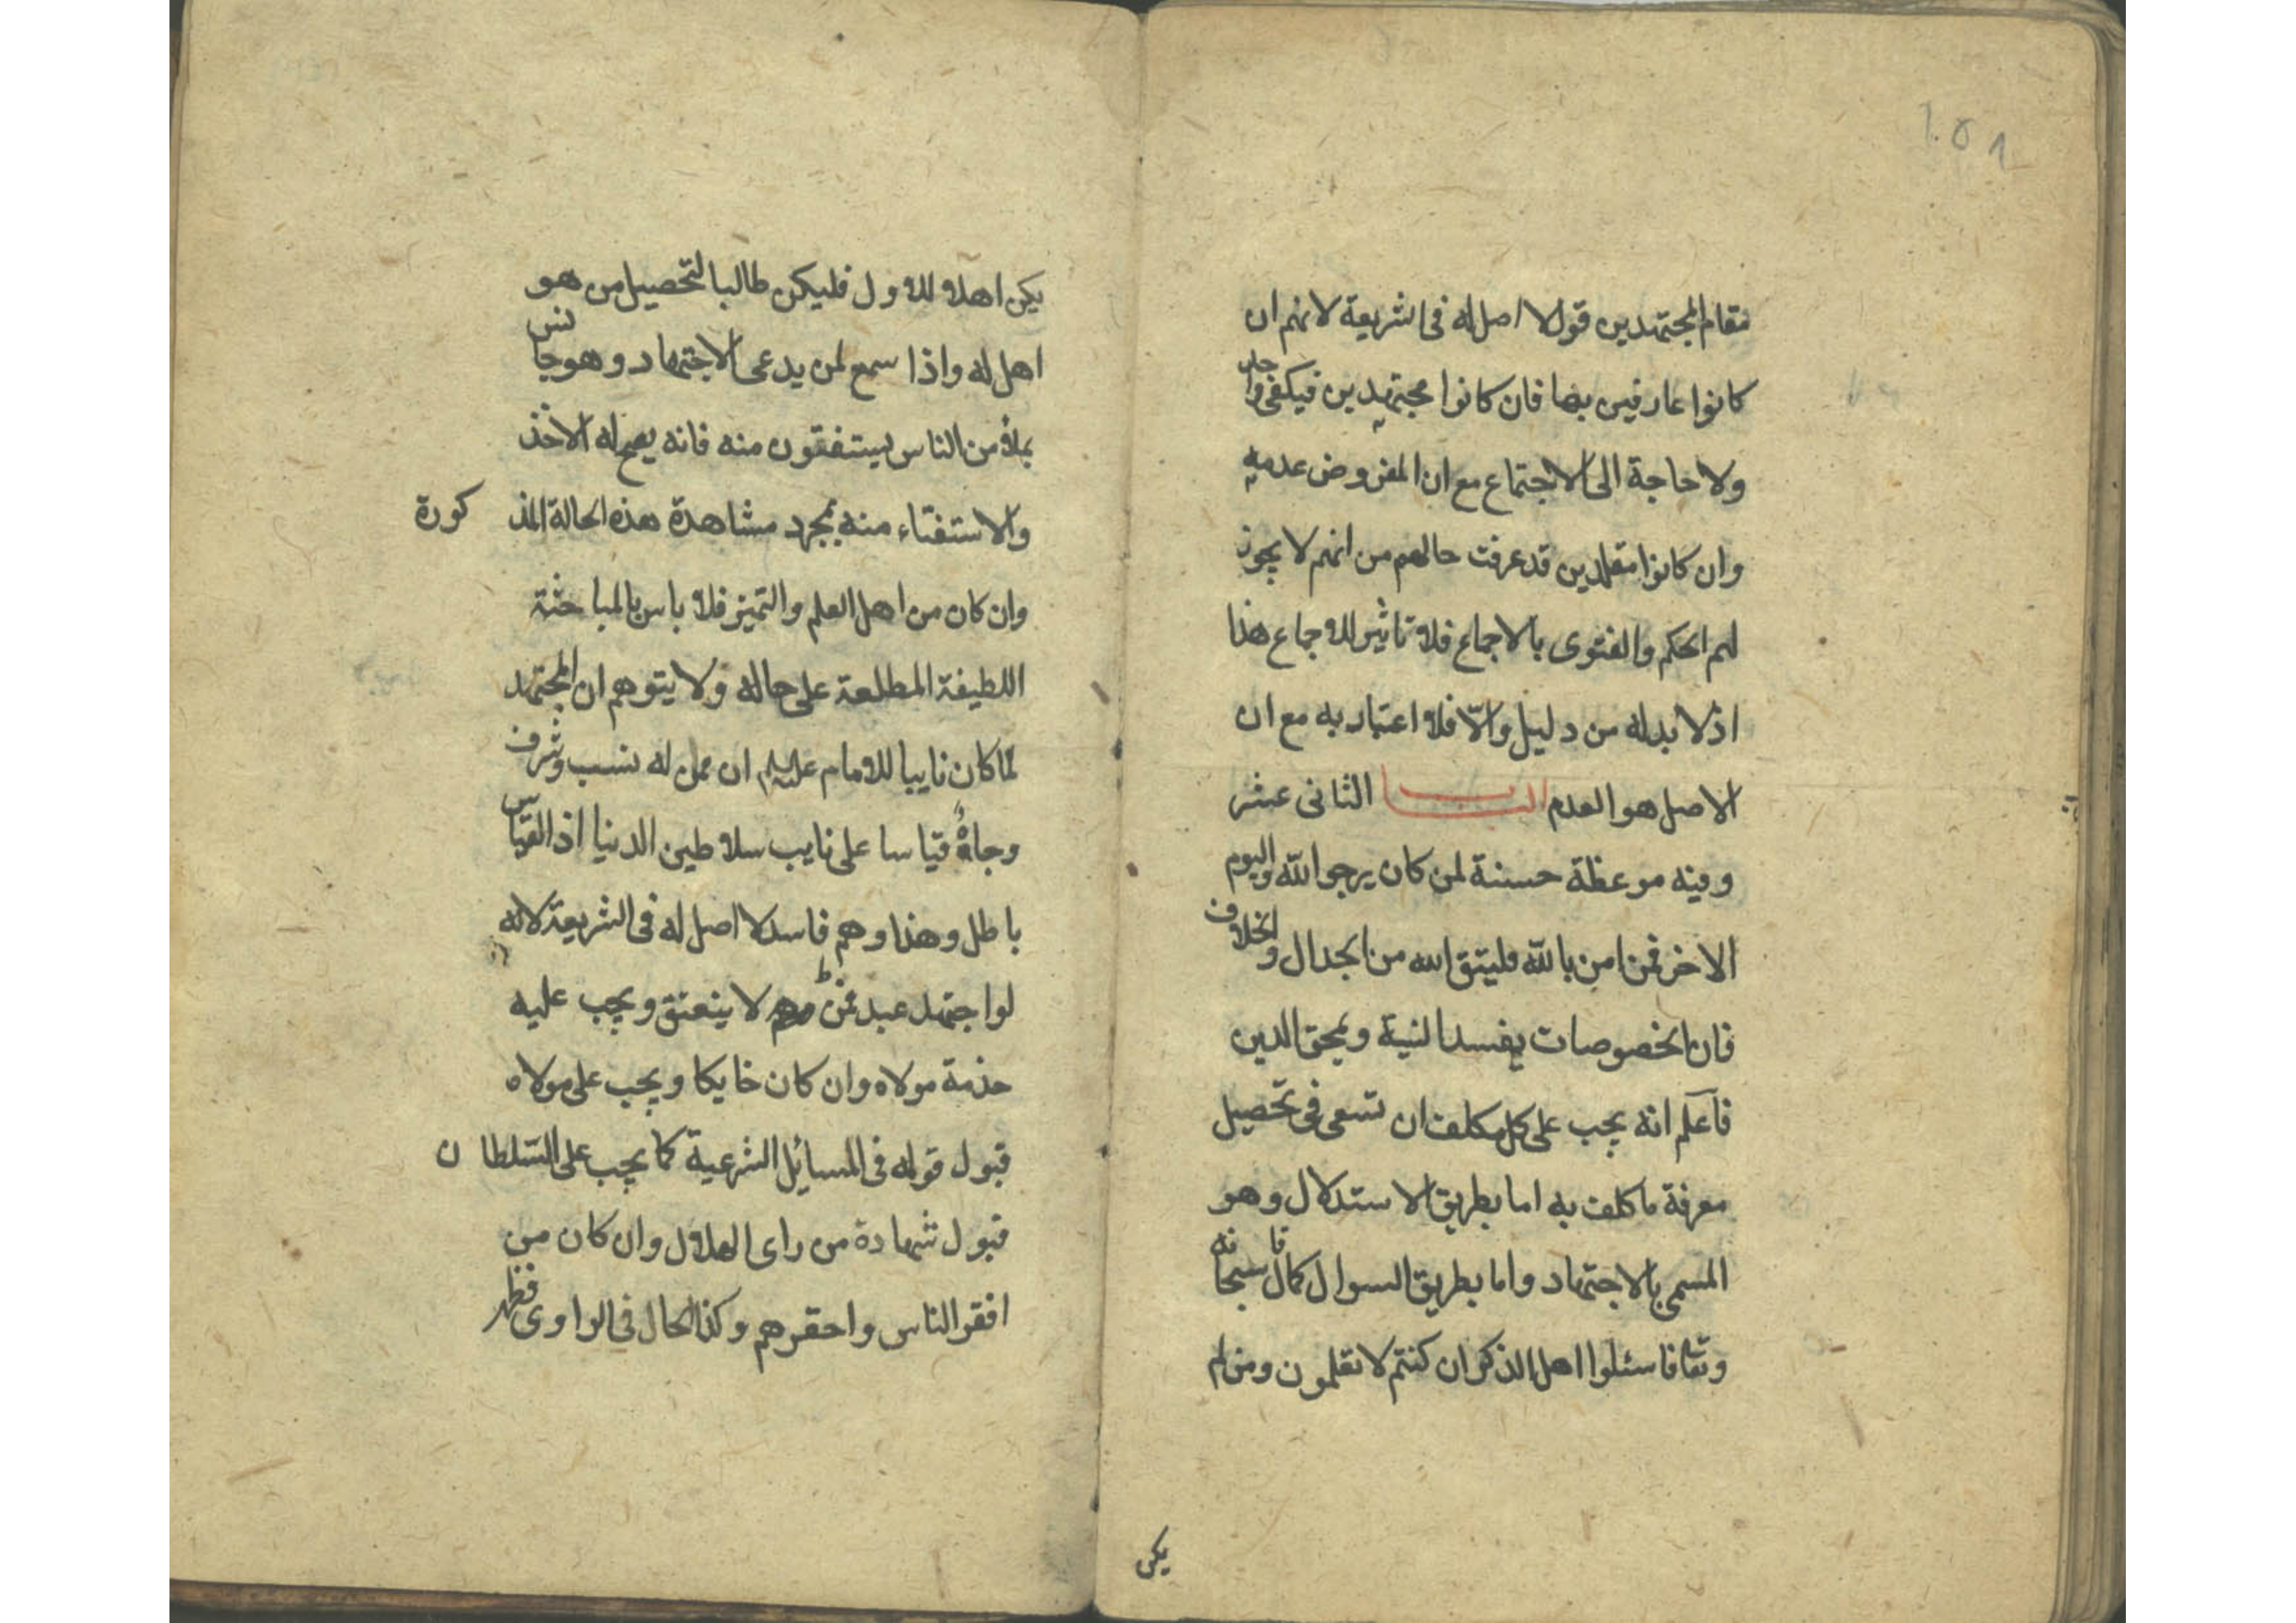 ١٥١
مقام المجتهدين قول لا اصل له فى الشريعة لانهم ان
كانوا عارفين بها فان كانوا مجتهدين فيكفى واحد
ولا حاجة الى الاجتماع مع ان المفروض عدمه
وان كانوا مقلدين قد عرفت حالهم من انهم لا يجوز
لهم الحكم والفتوى بالاجماع فلا تاثير للاجماع هذا
اذ لا بد له من دليل والّا فلا اعتبار به مع ان
الاصل هو العدم الباب الثانى عشر
وفيه موعظة حسنة لمن كان يرجوا الله واليوم
الاخر فمن امن بالله فليتق الله من الجدال والخلاف
فان الخصوصات يفسد النية ويمحق الدين
فاعلم انه يجب على كل مكلف ان تسعى فى تحصيل
معرفة ما كلف به اما بطريق الاستدلال وهو
المسمى بالاجتهاد واما بطريق السوال كما قال سبحانه
وتعا فاسئلوا اهل الذكر ان كنتم لا تعلمون ومن لم
يكن
يكن اهلا للاول فليكن طالبا لتحصيل من هو
اهل له واذا سمع لمن يدعى الاجتهاد وهو جالس
بملأ من الناس يستفتون منه فانه يصح له الاخذ
والاستفتاء منه بمجرد مشاهدة هذه الحالة المذكورة
وان كان من اهل العلم والتميز فلا باس بالمباحثة
اللطيفة المطلعة على حاله ولا يتوهم ان المجتهد
لما كان نايبا للامام عليه السلم ان من له نسب وشرف
وجاهٌ قياسا على نايب سلاطين الدنيا اذ القياس
باطل وهذا وهم فاسد لا اصل له فى الشريعة لانه
لو اجتهد عبد لا ينعتق ويجب عليه
خذمة مولاه وان كان خايكا ويجب على مولاه
قبول قوله فى المسائل الشرعية كما يجب على السّلطان
قبول شهادة من راى الهلال وان كان من
افقر الناس واحقرهم وكذا الحال فى الراوى فظهر